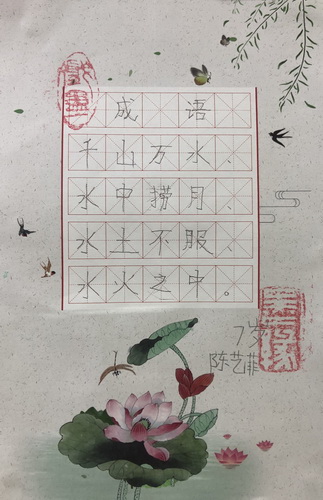 成语
千山万水、
水中捞月、
水土不服、
水火之中。
7岁
陈艺菲